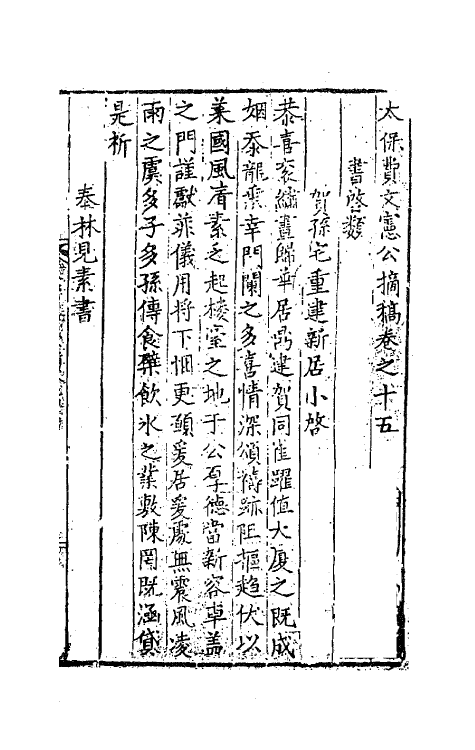 太保費文憲公摘稿卷之十五
書啓類
賀孫宅重建新居小啓
恭喜袞繡晝歸華居鼎建賀同雀躍值大厦之既成
姻忝龍乘幸門闌之多喜情深頌禱跡阻摳趨伏以
某國風有素乏起棱室之地于公厚德當新容卓盖
之門謹獻菲儀用將下悃更願爰居爰處無震風凌
雨之虞多子多孫傳食蘗飲氷之業敷陳罔既涵貸
是祈
奉林見素書